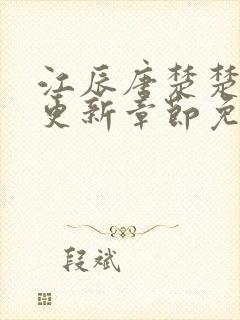 江辰唐楚楚
更新章节免
段斌